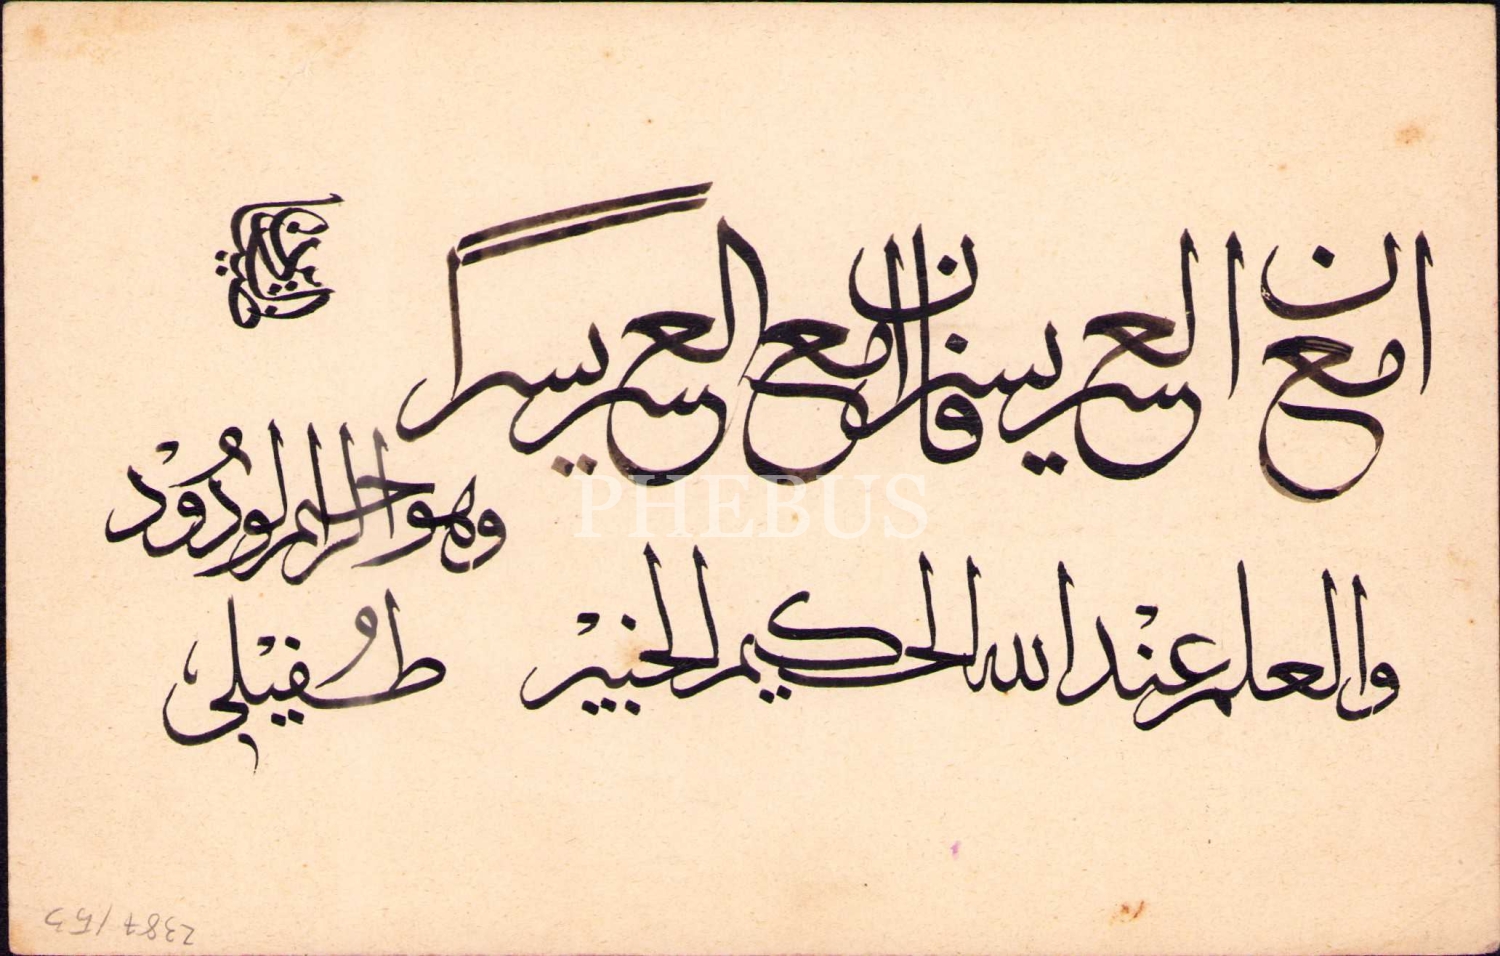 ان مع العسر يسرا فان مع العسر يسرا
وهو الرحيم الودود
والعلم عند الله الحكيم الخبير
طفيلى
PHEBUS
2387/153